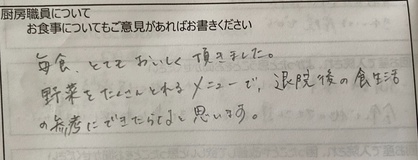 厨房職員について
お食事についてもご意見があればお書きください
毎食、とてもおいしく頂きました。
野菜をたくさんとれるメニューで、退院後の食生活
の参考にできたらなと思います。